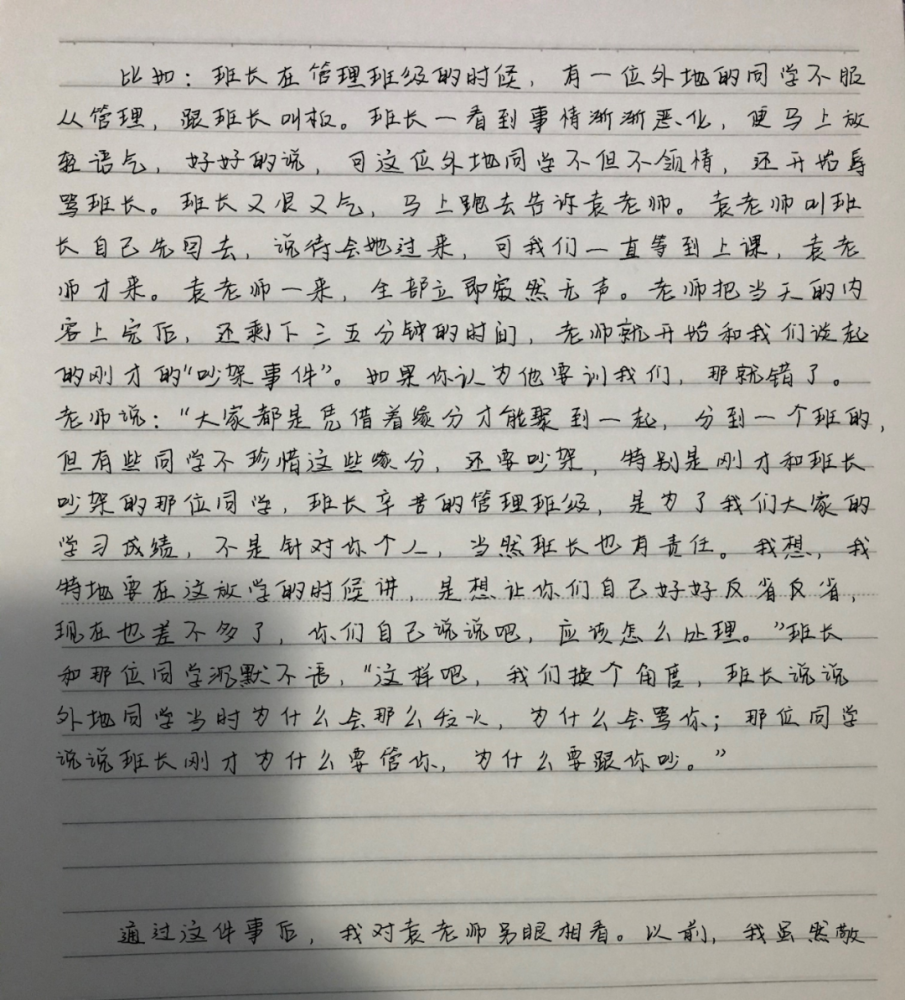 比如：班长在管理班级的时候，有一位外地的同学不服
从管理，跟班长叫板。班长一看到事情渐渐恶化，便马上放
轻语气，好好的说，可这位外地同学不但不领情，还开始辱
骂班长。班长又恨又气，马上跑去告诉袁老师。袁老师叫班
长自己先回去，说待会她过来，可我们一直等到上课，袁老
师才来。袁老师一来，全部立即寂然无声。老师把当天的内
容上完后，还剩下三五分钟的时间，老师就开始和我们谈起
的刚才的“吵架事件”。如果你认为他要训我们，那就错了。
老师说：“大家都是凭借着缘分才能聚到一起，分到一个班的，
但有些同学不珍惜这些缘分，还要吵架，特别是刚才和班长
吵架的那位同学，班长辛苦的管理班级，是为了我们大家的
学习成绩，不是针对你个人，当然班长也有责任。我想，我
特地要在这放学的时候讲，是想让你们自己好好反省反省，
现在也差不多了，你们自己说说吧，应该怎么处理。”班长
和那位同学沉默不语，“这样吧，我们换个角度，班长说说
外地同学当时为什么会那么发火，为什么会骂你；那位同学
说说班长刚才为什么要管你，为什么要跟你吵。”
通过这件事后，我对袁老师另眼相看。以前，我虽然敬